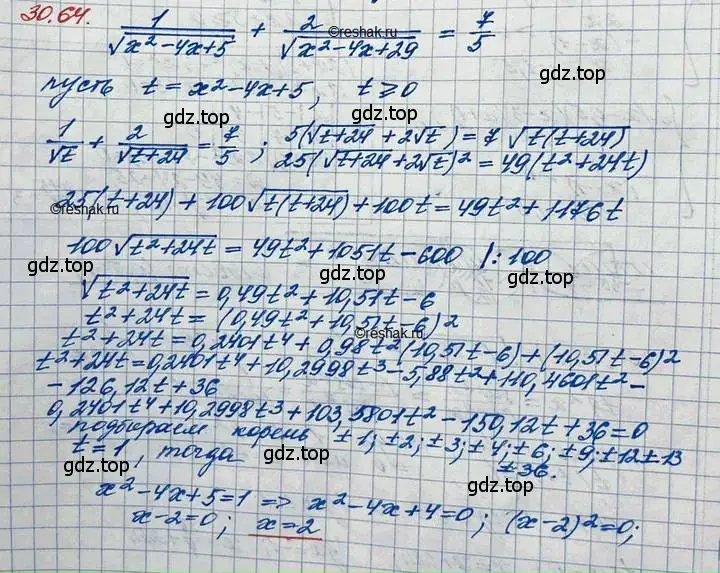 30.64.
1/√(x²-4x+5) + 2/√(x²-4x+29) = 7/5
©reshak.ru ©reshak.ru
пусть t = x²-4x+5, t ≥ 0
gdz.top gdz.top
1/√t + 2/√(t+24) = 7/5 ; 5(√(t+24) + 2√t) = 7√(t(t+24))
25(√(t+24) + 2√t)² = 49(t²+24t)
25(t+24) + 100√(t(t+24)) + 100t = 49t² + 1176t
©reshak.ru gdz.top
100√(t²+24t) = 49t² + 1051t - 600 /:100
gdz.top gdz.top
√(t²+24t) = 0,49t² + 10,51t - 6
t²+24t = (0,49t² + 10,51t - 6)²
t²+24t = 0,2401t⁴ + 0,98t²(10,51t-6) + (10,51t-6)²
gdz.top gdz.top
t²+24t = 0,2401t⁴ + 10,2998t³ - 5,88t² + 110,4601t² -
- 126,12t + 36
0,2401t⁴ + 10,2998t³ + 103,5801t² - 150,12t + 36 = 0
подбираем корень ±1; ±2; ±3; ±4; ±6; ±9; ±12 ±13
t = 1, тогда ±36.
gdz.top gdz.top
x²-4x+5=1 => x²-4x+4=0; (x-2)²=0;
x-2=0; x=2
©reshak.ru
gdz.top gdz.top